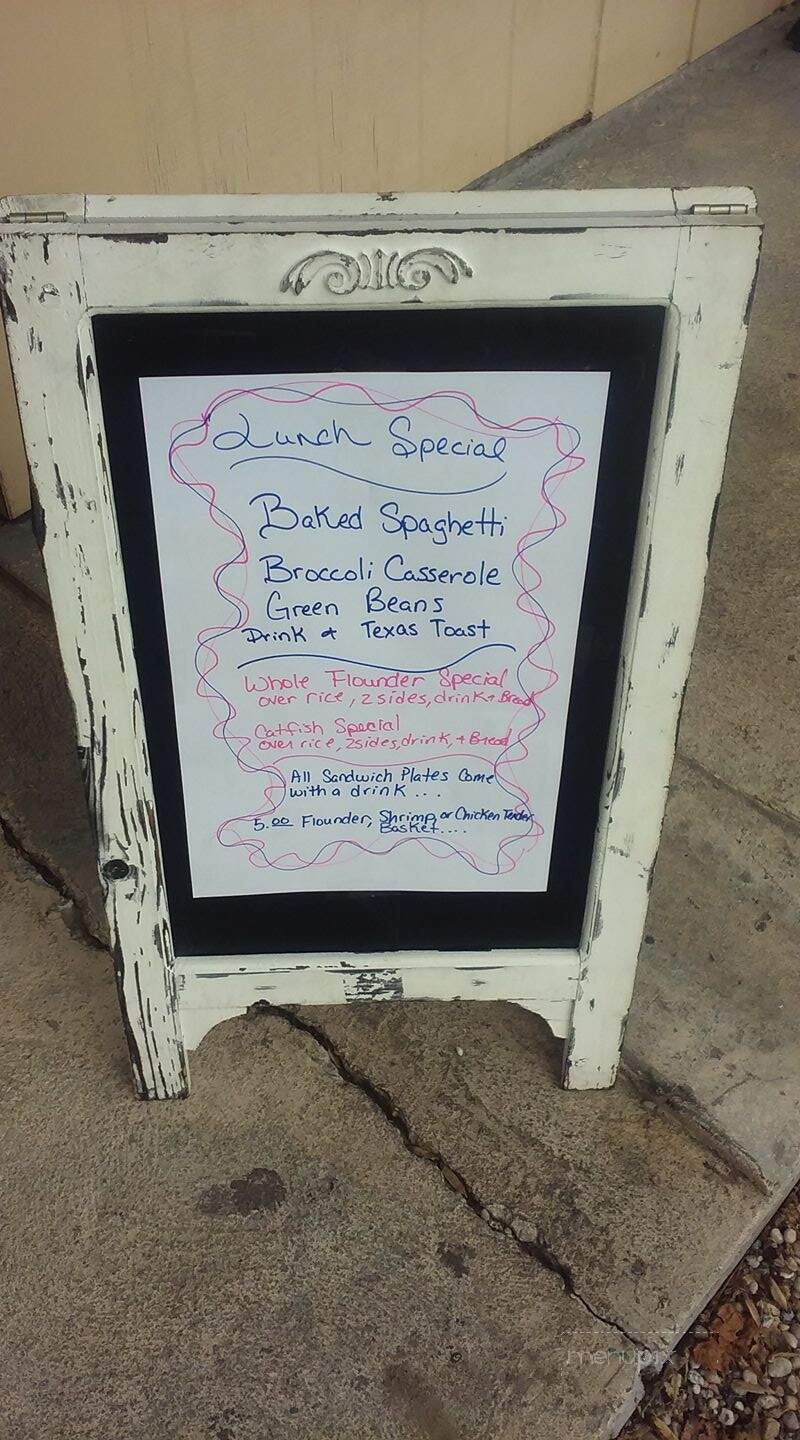 Lunch Special
Baked Spaghetti
Broccoli Casserole
Green Beans
Drink + Texas Toast
Whole Flounder Special
over rice, 2 sides, drink + Bread
Catfish Special
over rice, 2sides, drink, + Bread
All Sandwich Plates Come
with a drink ...
5.00 Flounder, Shrimp, or Chicken Tender
Basket....
menupix